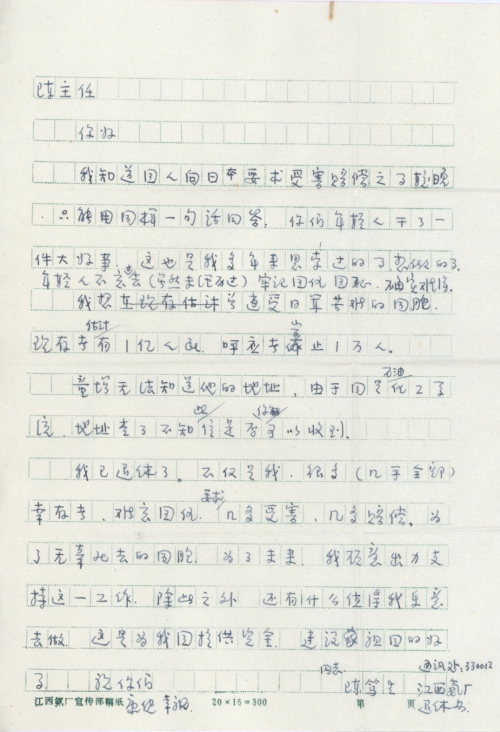 陈主任
你好
我知道国人向日本要求受害赔偿之了较晚
,只能用同样一句话回答。你们年轻人干了一
件大好事,这也是我多年来思考过的了,想做的了。
年轻人不忘过去(虽然未经历过)牢记国仇国耻,确实难得。
我想至现存估计曾遭受日军苦难的同胞,
估计
现存者有1亿人民,呼应者岂止1万人。
童增无法知道他的地址,由于国是化工了
石油
院,地址查了不知信是否可以收到。
此 你们
我已退休了。不仅是我,很多(几乎全部)
幸存者,难忘国仇,几多受害,几多赔偿。为
要求
了无辜死去的同胞,为了未来,我愿意出力支
持这一工作,除此之外,还有什么值得我乐意
去做,这是为我国提供资金,建设家祖国的好
了 祝你们
康健 幸福
同志
陈笃生
通讯处:330012
江西氨厂
退休办
江西氨厂宣传部稿纸 20×15=300 第 页